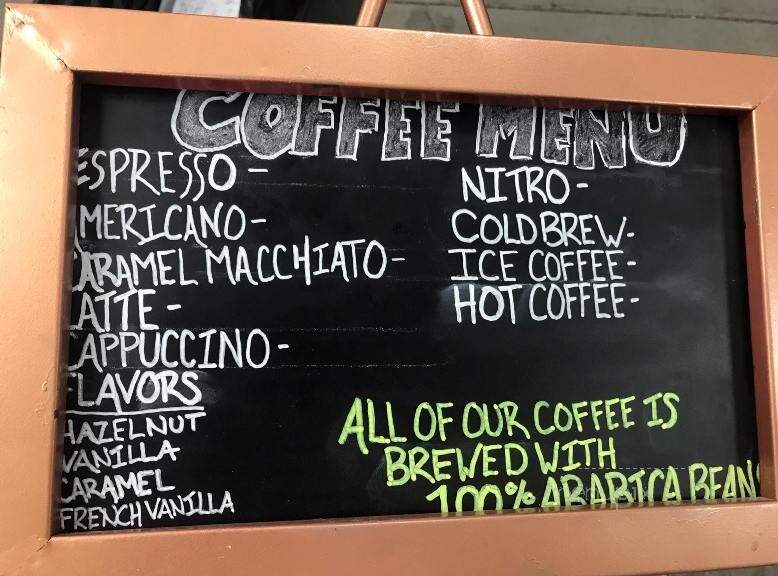 COFFEE MENU
ESPRESSO -
AMERICANO -
CARAMEL MACCHIATO -
LATTE -
CAPPUCCINO -
FLAVORS
HAZELNUT
VANILLA
CARAMEL
FRENCH VANILLA
NITRO -
COLD BREW -
ICE COFFEE -
HOT COFFEE -
ALL OF OUR COFFEE IS
BREWED WITH
100% ARABICA BEANS